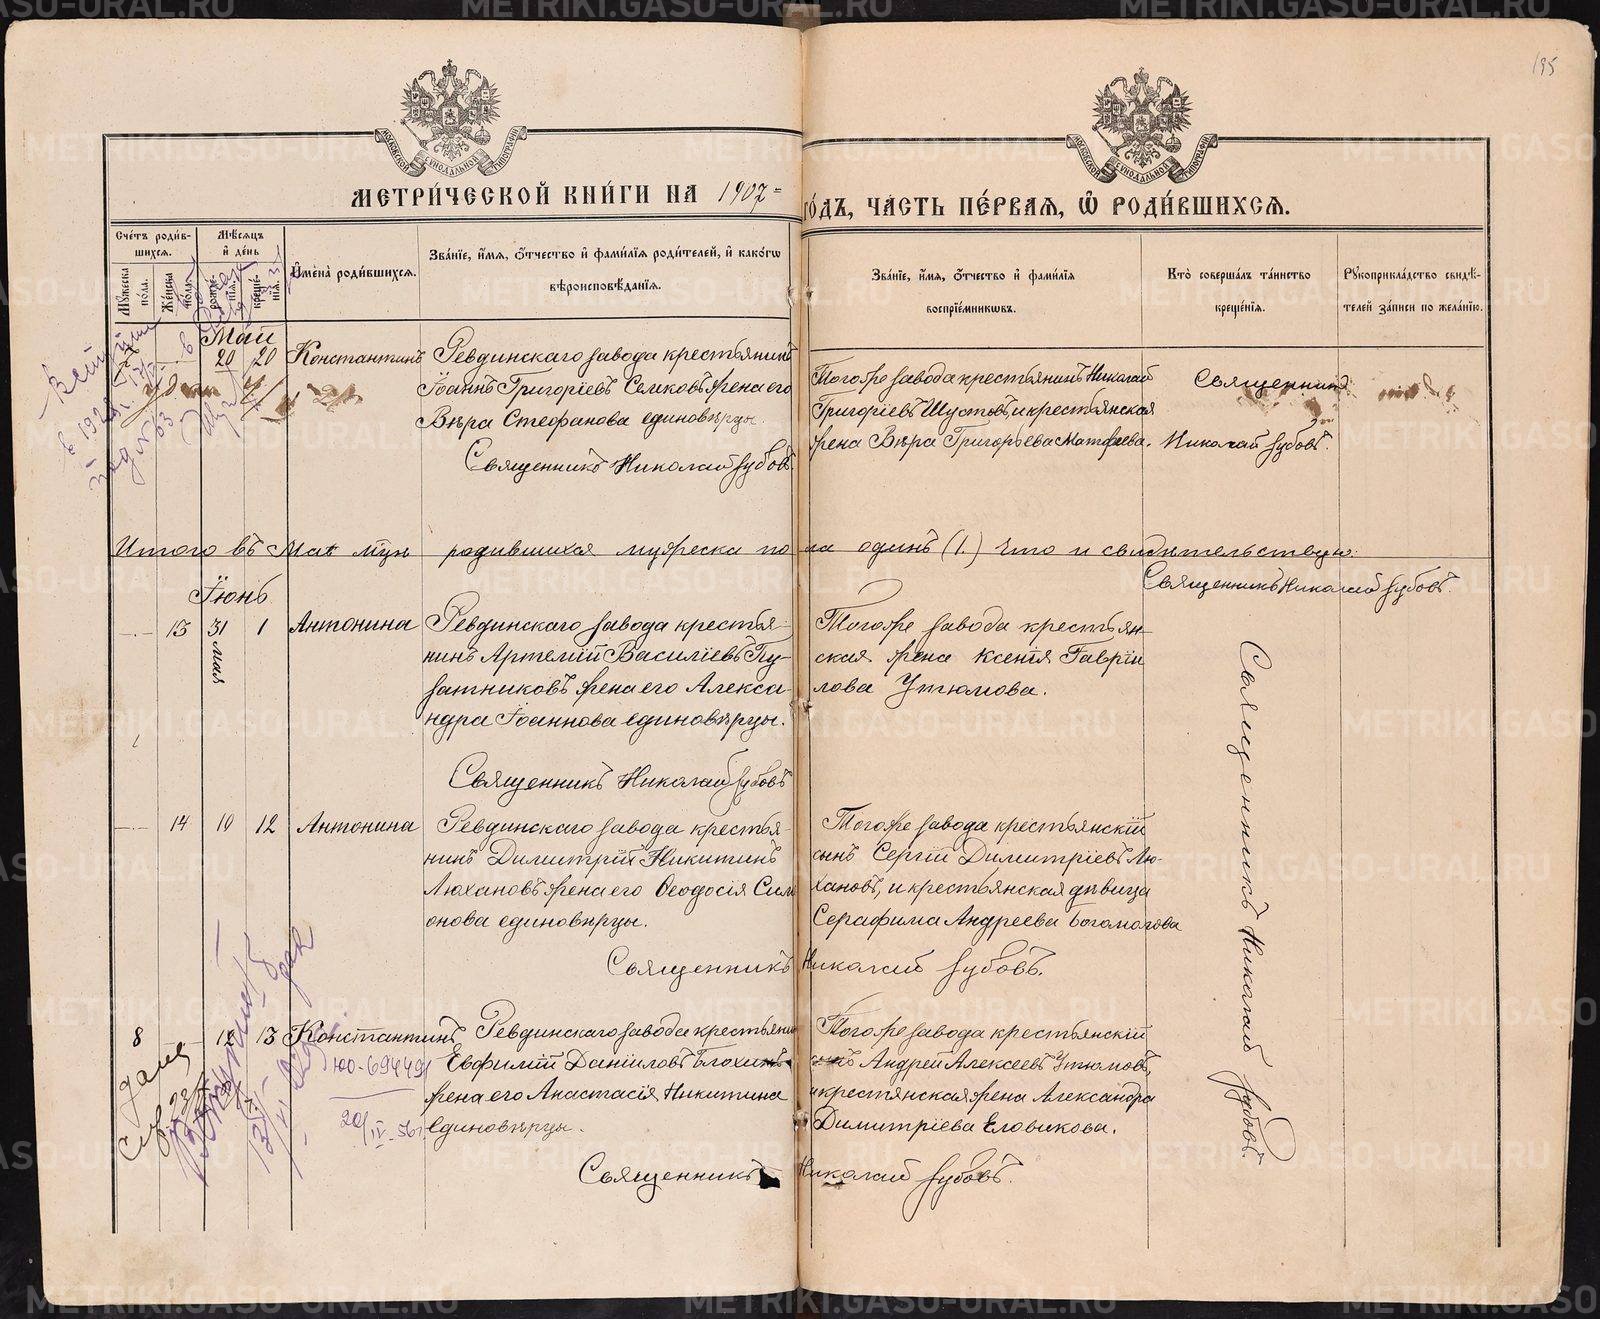 195
МОСКОВСКОЙ СУНОДАЛЬНОЙ ТИПОГРАФІИ
МОСКОВСКОЙ СУНОДАЛЬНОЙ ТИПОГРАФІИ
МЕТРИ́ЧЕСКОЙ КНИ́ГИ НА 1907=
го́дъ, ча́сть пе́рваѧ, ѽ роди́вшихсѧ.
Сче́тъ роди́в-
шихсѧ.
Мѣ́сѧцъ
и҆ де́нь
Мꙋ́жеска
по́ла.
Же́нска
по́ла.
рожде́-
нїѧ.
креще́-
нїѧ.
И҆мена̀ роди́вшихсѧ.
Зва́нїе, и҆́мѧ, ѻ҆́тчество и҆ фами́лїѧ роди́телей, и҆ како́гѡ
вѣроисповѣ́данїѧ.
Зва́нїе, и҆́мѧ, ѻ҆́тчество и҆ фами́лїѧ
воспрїе́мникѡвъ.
Кто̀ соверша́лъ та́инство
креще́нїѧ.
Рꙋкоприкла́дство свидѣ́-
телей за́писи по жела́нїю.
Май
20 20 Константинъ
Ревдинскаго завода крестьянинъ
Іоаннъ Григоріевъ жена его
Вѣра Стефанова единовѣрцы.
Священникъ Николай Зубовъ
Тогоже завода крестьянинъ Николай
Григоріевъ Шустовъ, и крестьянская
жена Вѣра Григорьева Матфеева.
Священникъ
Николай Зубовъ.
Итого въ Маѣ м҃цѣ родившихся мужеска пола одинъ (1.) Что и свидѣтельствую:
Священникъ Николай Зубовъ.
Іюнь
13 31 мая 1 Антонина
Ревдинскаго завода крестья-
нинъ Артемій Василіевъ Пу-
затниковъ жена его Алекса-
ндра Іоаннова единовѣрцы.
Священникъ Николай Зубовъ
Тогоже завода крестьян-
ская жена Ксенія Гаврїи
лова Утюмова.
14 10 12 Антонина
Ревдинскаго завода крестья-
нинъ Димитрій Никитинъ
Люхановъ жена его Ѳеодосія Сим
онова единовѣрцы.
Тогоже завода крестьянскій
сынъ Сергій Димитріевъ Лю-
хановъ, и крестьянская дѣвица
Серафима Андреева Богомолова
Священникъ Николай Зубовъ.
8 12 13 Константинъ
Ревдинскаго завода крестьянинъ
Евфимій Даніиловъ Блохинъ
жена его Анастасія Никитина
Единовѣрцы.
Тогоже завода крестьянскій
сынъ Андрей Алексеевъ Утюмовъ,
и крестянская жена Александра
Димитріева Еловикова.
Священникъ Николай Зубовъ.
Священникъ Николай Зубовъ.
Ю-694491
20/IV-56г.
METRIKI.GASO-URAL.RU